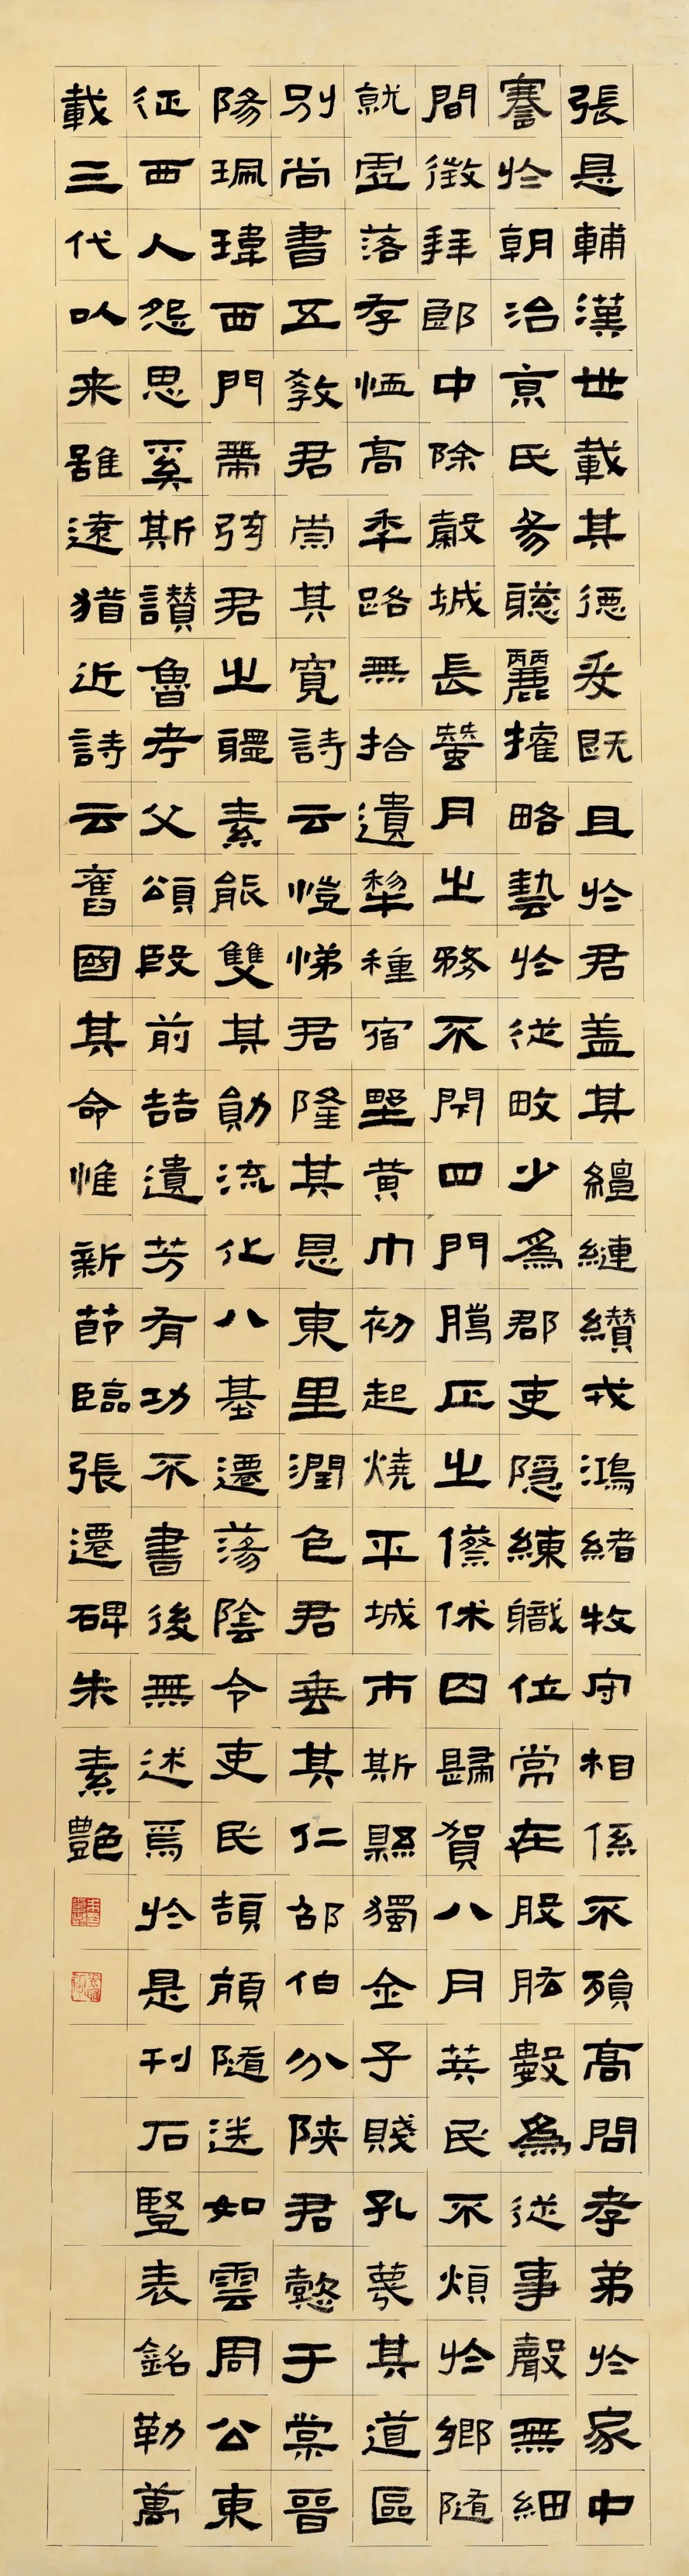 張是輔漢世載其德爰既且於君盖其繵縺纘戎鴻緒牧守相係不殞高問孝弟於家中
謇於朝治京氏易聰麗攉略藝於從畋少為郡吏隱練職位常在股肱數為從事聲無細
間徵拜郎中除榖城長蠶月之務不閉四門腊正之僚休囚歸賀八月䇦民不煩於鄉隨
就虛落存恤高年路無拾遺犂種宿野黃巾初起燒平城市斯縣獨全子賤孔蔑其道區
別尚書五教君崇其寬詩云愷悌君隆其恩東里潤色君垂其仁邵伯分陝君懿于棠晉
陽珮瑋西門帶弦君之體素能雙其勛流化八基遷蕩陰令吏民頡頏隨送如雲周公東
征西人怨思奚斯讚魯考父頌殷前喆遺芳有功不書後無述焉於是刊石豎表銘勒萬
載三代以来雖遠猶近詩云舊國其命惟新節臨張遷碑朱素艷